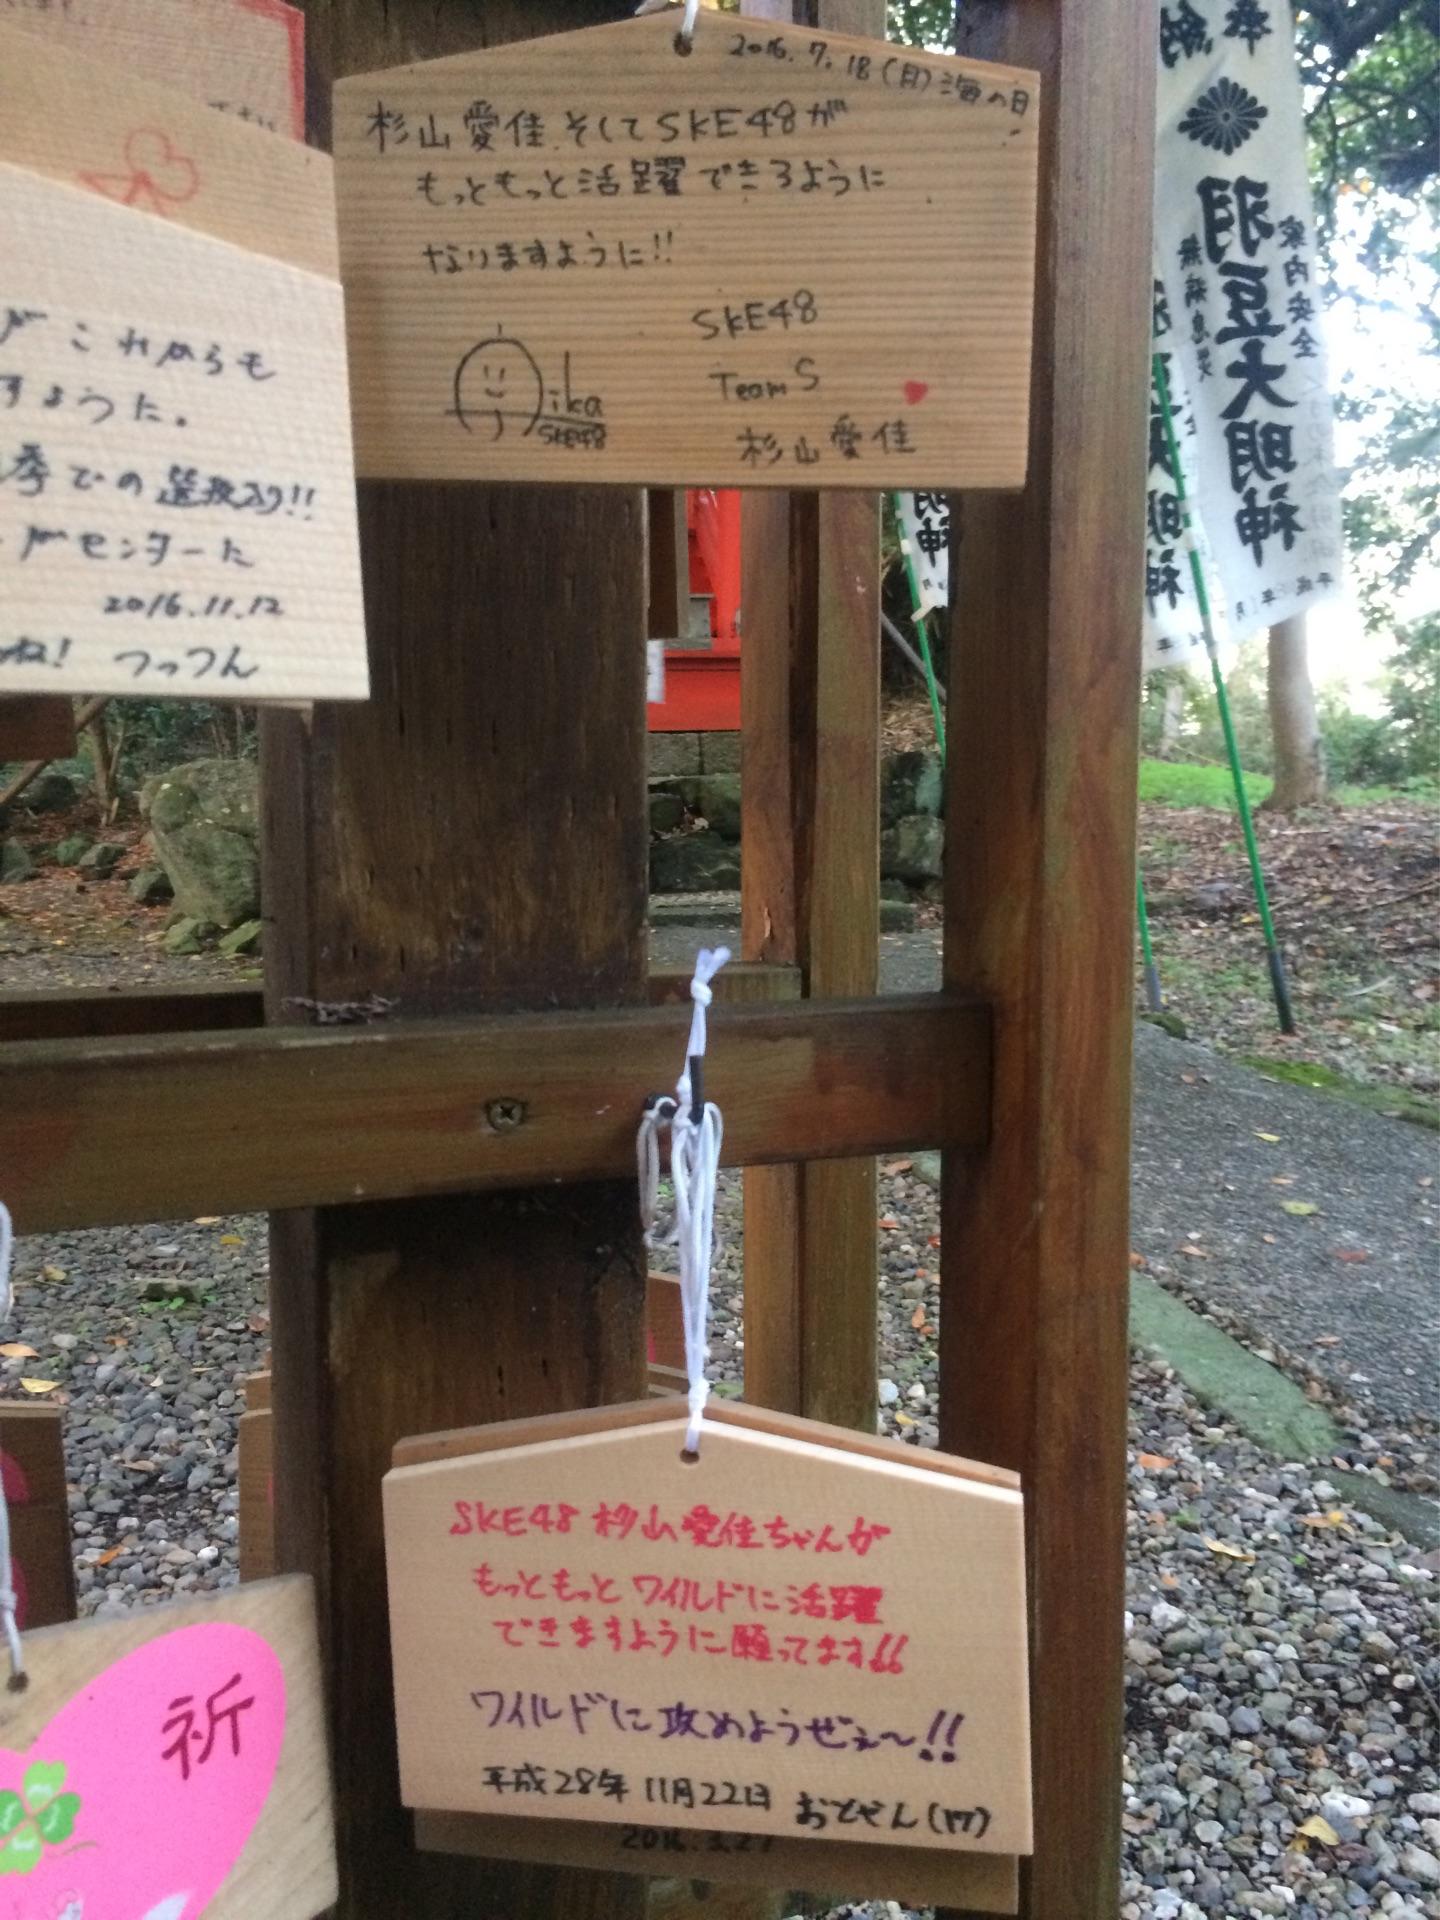 2016.7.18(月)海の日
杉山愛佳.そしてSKE48が
もっともっと活躍できるように
なりますように!!
SKE48
Team S
杉山愛佳
ika
SKE48
がこれからも
すように。
季での選抜入り!!
がセンターに
2016.11.12
ね! つっつん
SKE48 杉山愛佳ちゃんが
もっともっとワイルドに活躍
できますように願ってます!!
ワイルドに攻めようぜぇ〜!!
平成28年 11月22日 おとやん(17)
2016.3.27
祈
奉納
家内安全
羽豆大明神
無病息災
明神